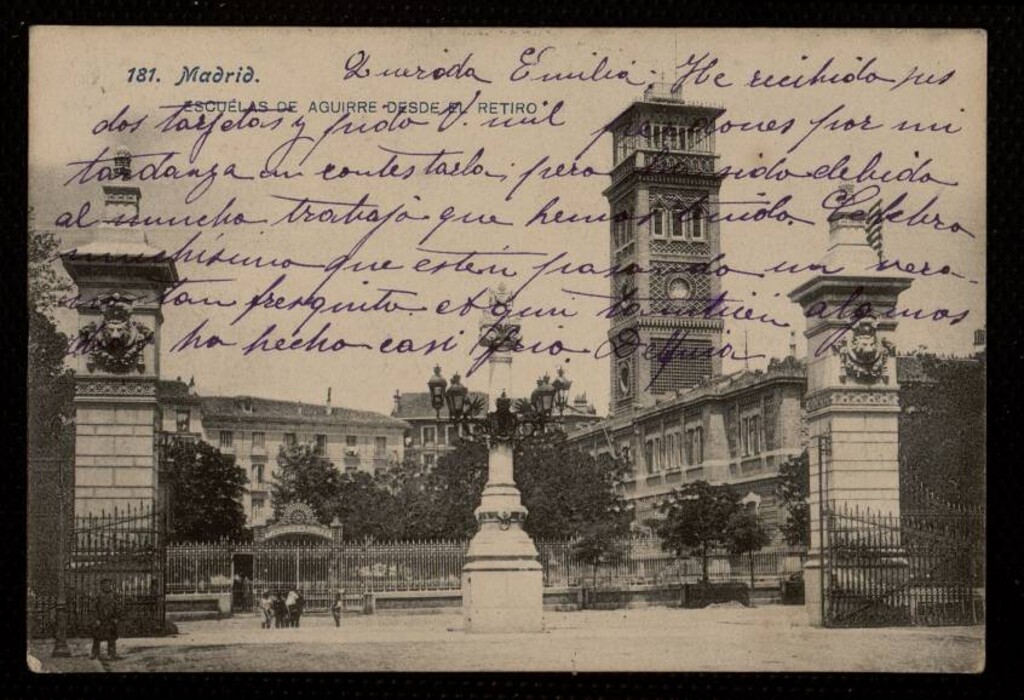 181. Madrid.
ESCUELAS DE AGUIRRE DESDE EL RETIRO
Querida Emilia: He recibido sus
dos tarjetas y pido V. mil perdones por mi
tardanza en contestarla; pero ha sido debido
al muncho trabajo que hemos tenido. Celebro
munchisimo que esten pasando un vera-
no tan fresquito et qui tambien algunos
dias ha hecho casi frio.